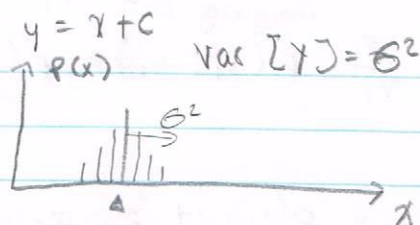 y = x + c
Var [Y] = σ²
p(x)
σ²
x